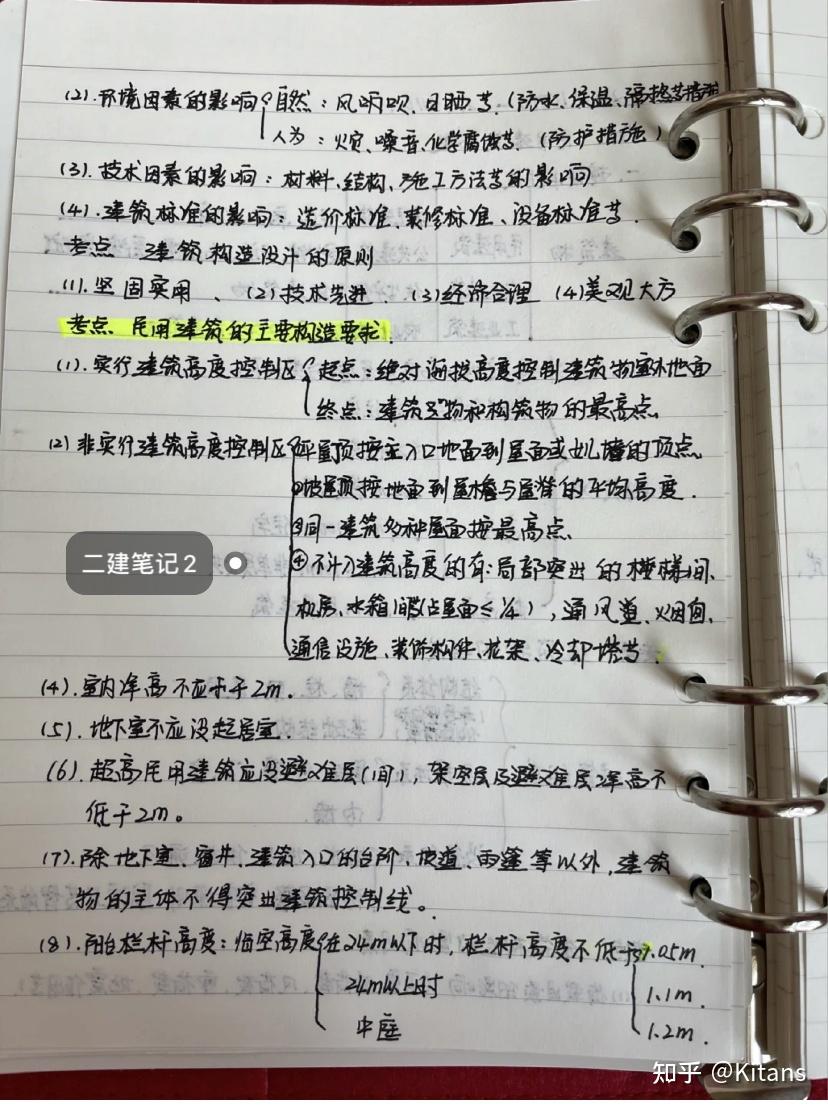 (2).环境因素的影响 自然：风雨、日晒等.(防水、保温、隔热等措施
人为：火灾、噪音、化学腐蚀等.（防护措施）
(3).技术因素的影响：材料、结构、施工方法等的影响
(4).建筑标准的影响：造价标准、装修标准、设备标准等.
考点 建筑构造设计的原则
(1).坚固实用、(2)技术先进、(3)经济合理 (4)美观大方
考点、民用建筑的主要构造要求.
(1).实行建筑高度控制区 起点：绝对海拔高度控制建筑物室外地面
终点：建筑物和构筑物的最高点.
(2)非实行建筑高度控制区 ①平屋顶按主入口地面到屋面或女儿墙的顶点.
②坡屋顶按地面到屋檐与屋脊的平均高度.
③同一建筑多种屋面按最高点.
④不计入建筑高度的有：局部突出的楼梯间、
二建笔记2
机房、水箱间(占屋面≤1/4)，通风道、烟囱、
通信设施、装饰构件、花架、冷却塔等.
(4).室内净高不应小于2m.
(5).地下室不应设起居室.
(6).超高民用建筑应设避难层(间)，架空层及避难层净高不
低于2m。
(7).除地下室、窗井、建筑入口的台阶、坡道、雨篷等以外，建筑
物的主体不得突出建筑控制线。
(8).阳台栏杆高度：临空高度 在24m以下时，栏杆高度不低于 1.05m.
24m以上时 1.1m.
中庭 1.2m.
知乎 @Kitans